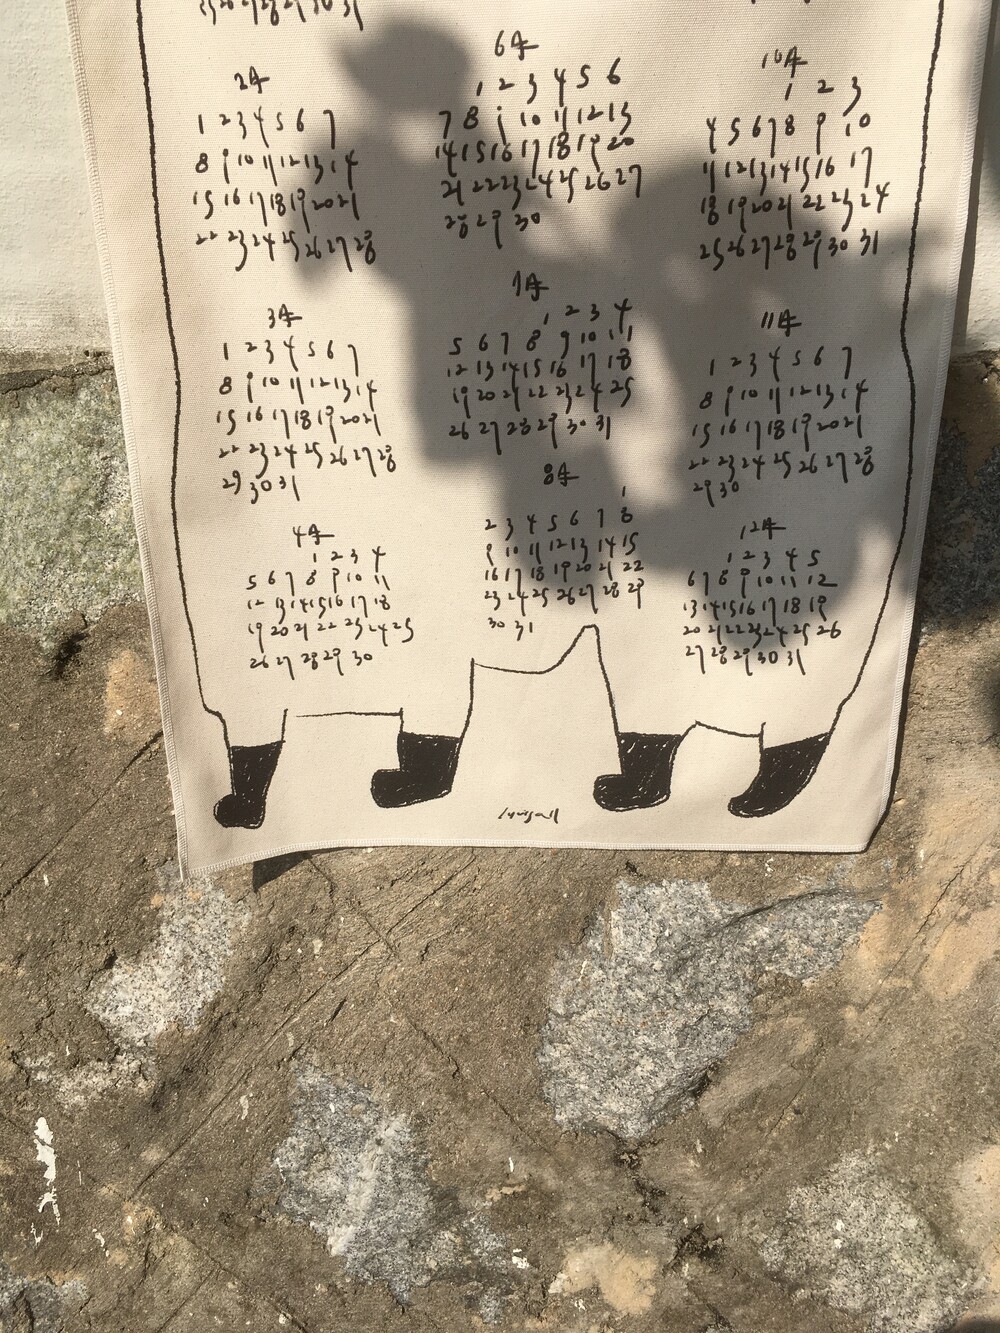 25 26 27 28 29 30 31
2年
1 2 3 4 5 6 7
8 9 10 11 12 13 14
15 16 17 18 19 20 21
22 23 24 25 26 27 28
3年
1 2 3 4 5 6 7
8 9 10 11 12 13 14
15 16 17 18 19 20 21
22 23 24 25 26 27 28
29 30 31
4年
1 2 3 4
5 6 7 8 9 10 11
12 13 14 15 16 17 18
19 20 21 22 23 24 25
26 27 28 29 30
6年
1 2 3 4 5 6
7 8 9 10 11 12 13
14 15 16 17 18 19 20
21 22 23 24 25 26 27
28 29 30
7年
1 2 3 4
5 6 7 8 9 10 11
12 13 14 15 16 17 18
19 20 21 22 23 24 25
26 27 28 29 30 31
8年
1
2 3 4 5 6 7 8
9 10 11 12 13 14 15
16 17 18 19 20 21 22
23 24 25 26 27 28 29
30 31
10年
1 2 3
4 5 6 7 8 9 10
11 12 13 14 15 16 17
18 19 20 21 22 23 24
25 26 27 28 29 30 31
11年
1 2 3 4 5 6 7
8 9 10 11 12 13 14
15 16 17 18 19 20 21
22 23 24 25 26 27 28
29 30
12年
1 2 3 4 5
6 7 8 9 10 11 12
13 14 15 16 17 18 19
20 21 22 23 24 25 26
27 28 29 30 31